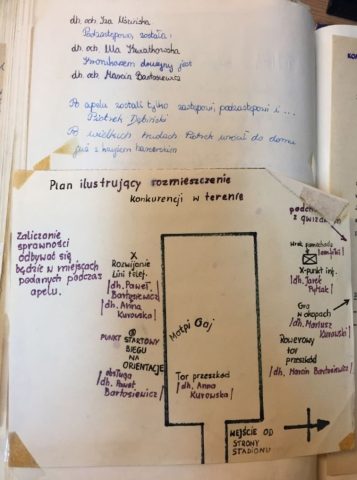 dh. och. Iza Mścińska
Podzastępową, została:
dh. och. Ula Kwiatkowska
Kronikarzem drużyny jest
dh. och. Marcin Bartosiewicz
Po apelu zostali tylko zastępowi, podzastępowi i ...
Piotrek Dębiński
Po wielkich trudach Piotrek wrócił do domu
już z krzyżem harcerskim
Plan ilustrujący rozmieszczenie
Konkurencji w terenie
Zaliczanie
sprawności
odbywać się
będzie w miejscach
podanych podczas
apelu.
X
Rozwijanie
Lini telef.
/dh. Paweł
Bartosiewicz/
/dh. Anna
Kurowska/
PUNKT STARTOWY
BIEGU
NA
ORIENTACJE
/obsługa
dh. Paweł
Bartosiewicz/
Małpi Gaj
Tor przeszkód
/dh. Anna
Kurowska/
podch
z gwizd
wrak samochodu
X-punkt int.
/dh. Jarek
Pytlak/
Gra
w okopach
/dh. Mariusz
Kurowski/
Rowerowy
tor
przeszkód
/dh. Marcin Bartosiewicz/
WEJŚCIE OD
STRONY
STADIONU